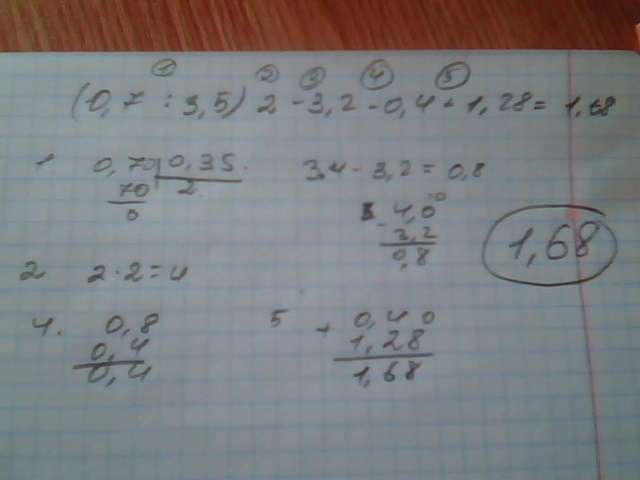 ① ② ③ ④ ⑤
(0,7 : 3,5) 2 - 3,2 - 0,4 + 1,28 = 1,68
1 0,70 | 0,35.
70 2
0
3,4 - 3,2 = 0,8
4,0
- 3,2
0,8
1,68
2 2 · 2 = 4
4. 0,8
0,4
0,4
5 + 0,40
1,28
1,68